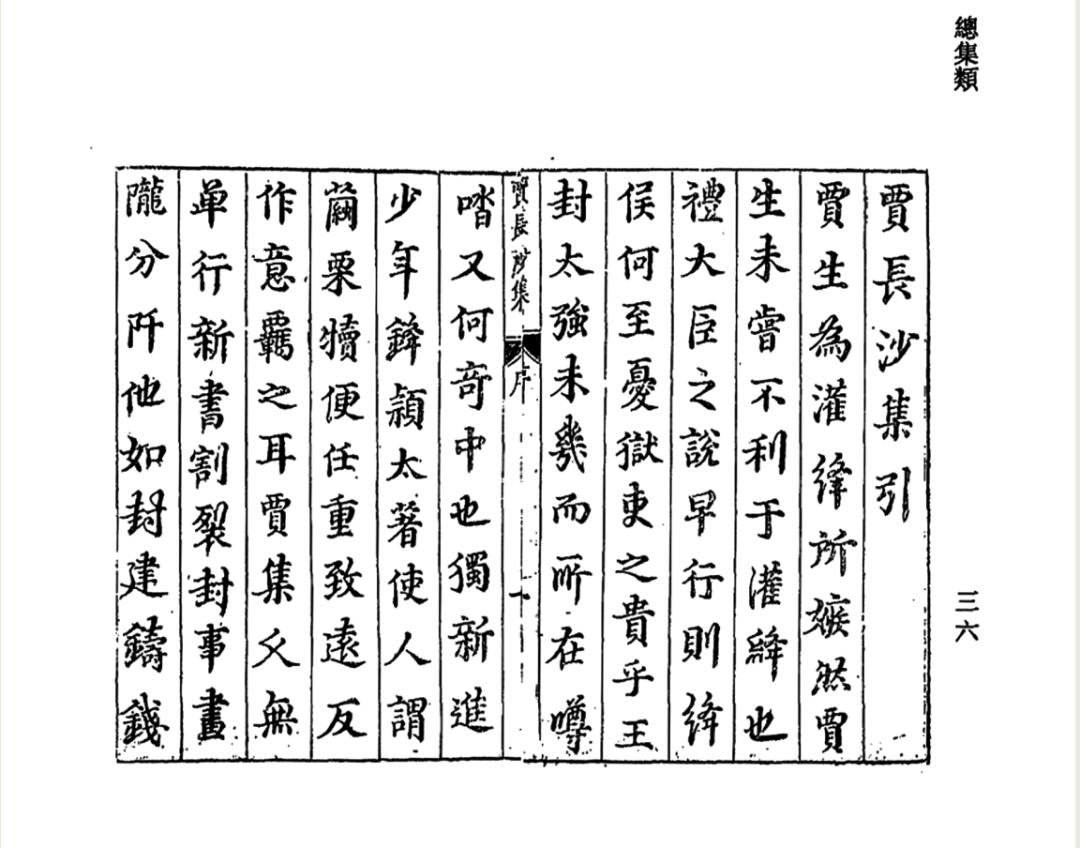 總集類
賈長沙集引
賈生為灌絳所嫉然賈
生未嘗不利于灌絳也
禮大臣之說早行則絳
侯何至憂獄吏之貴乎王
封太強未幾而所在噂
賈長沙集
序
一
喈又何竒中也獨新進
少年鋒頴太著使人謂
繭栗犢便任重致遠反
作意羈之耳賈集久無
单行新書割裂封事畫
隴分阡他如封建鑄錢
三六